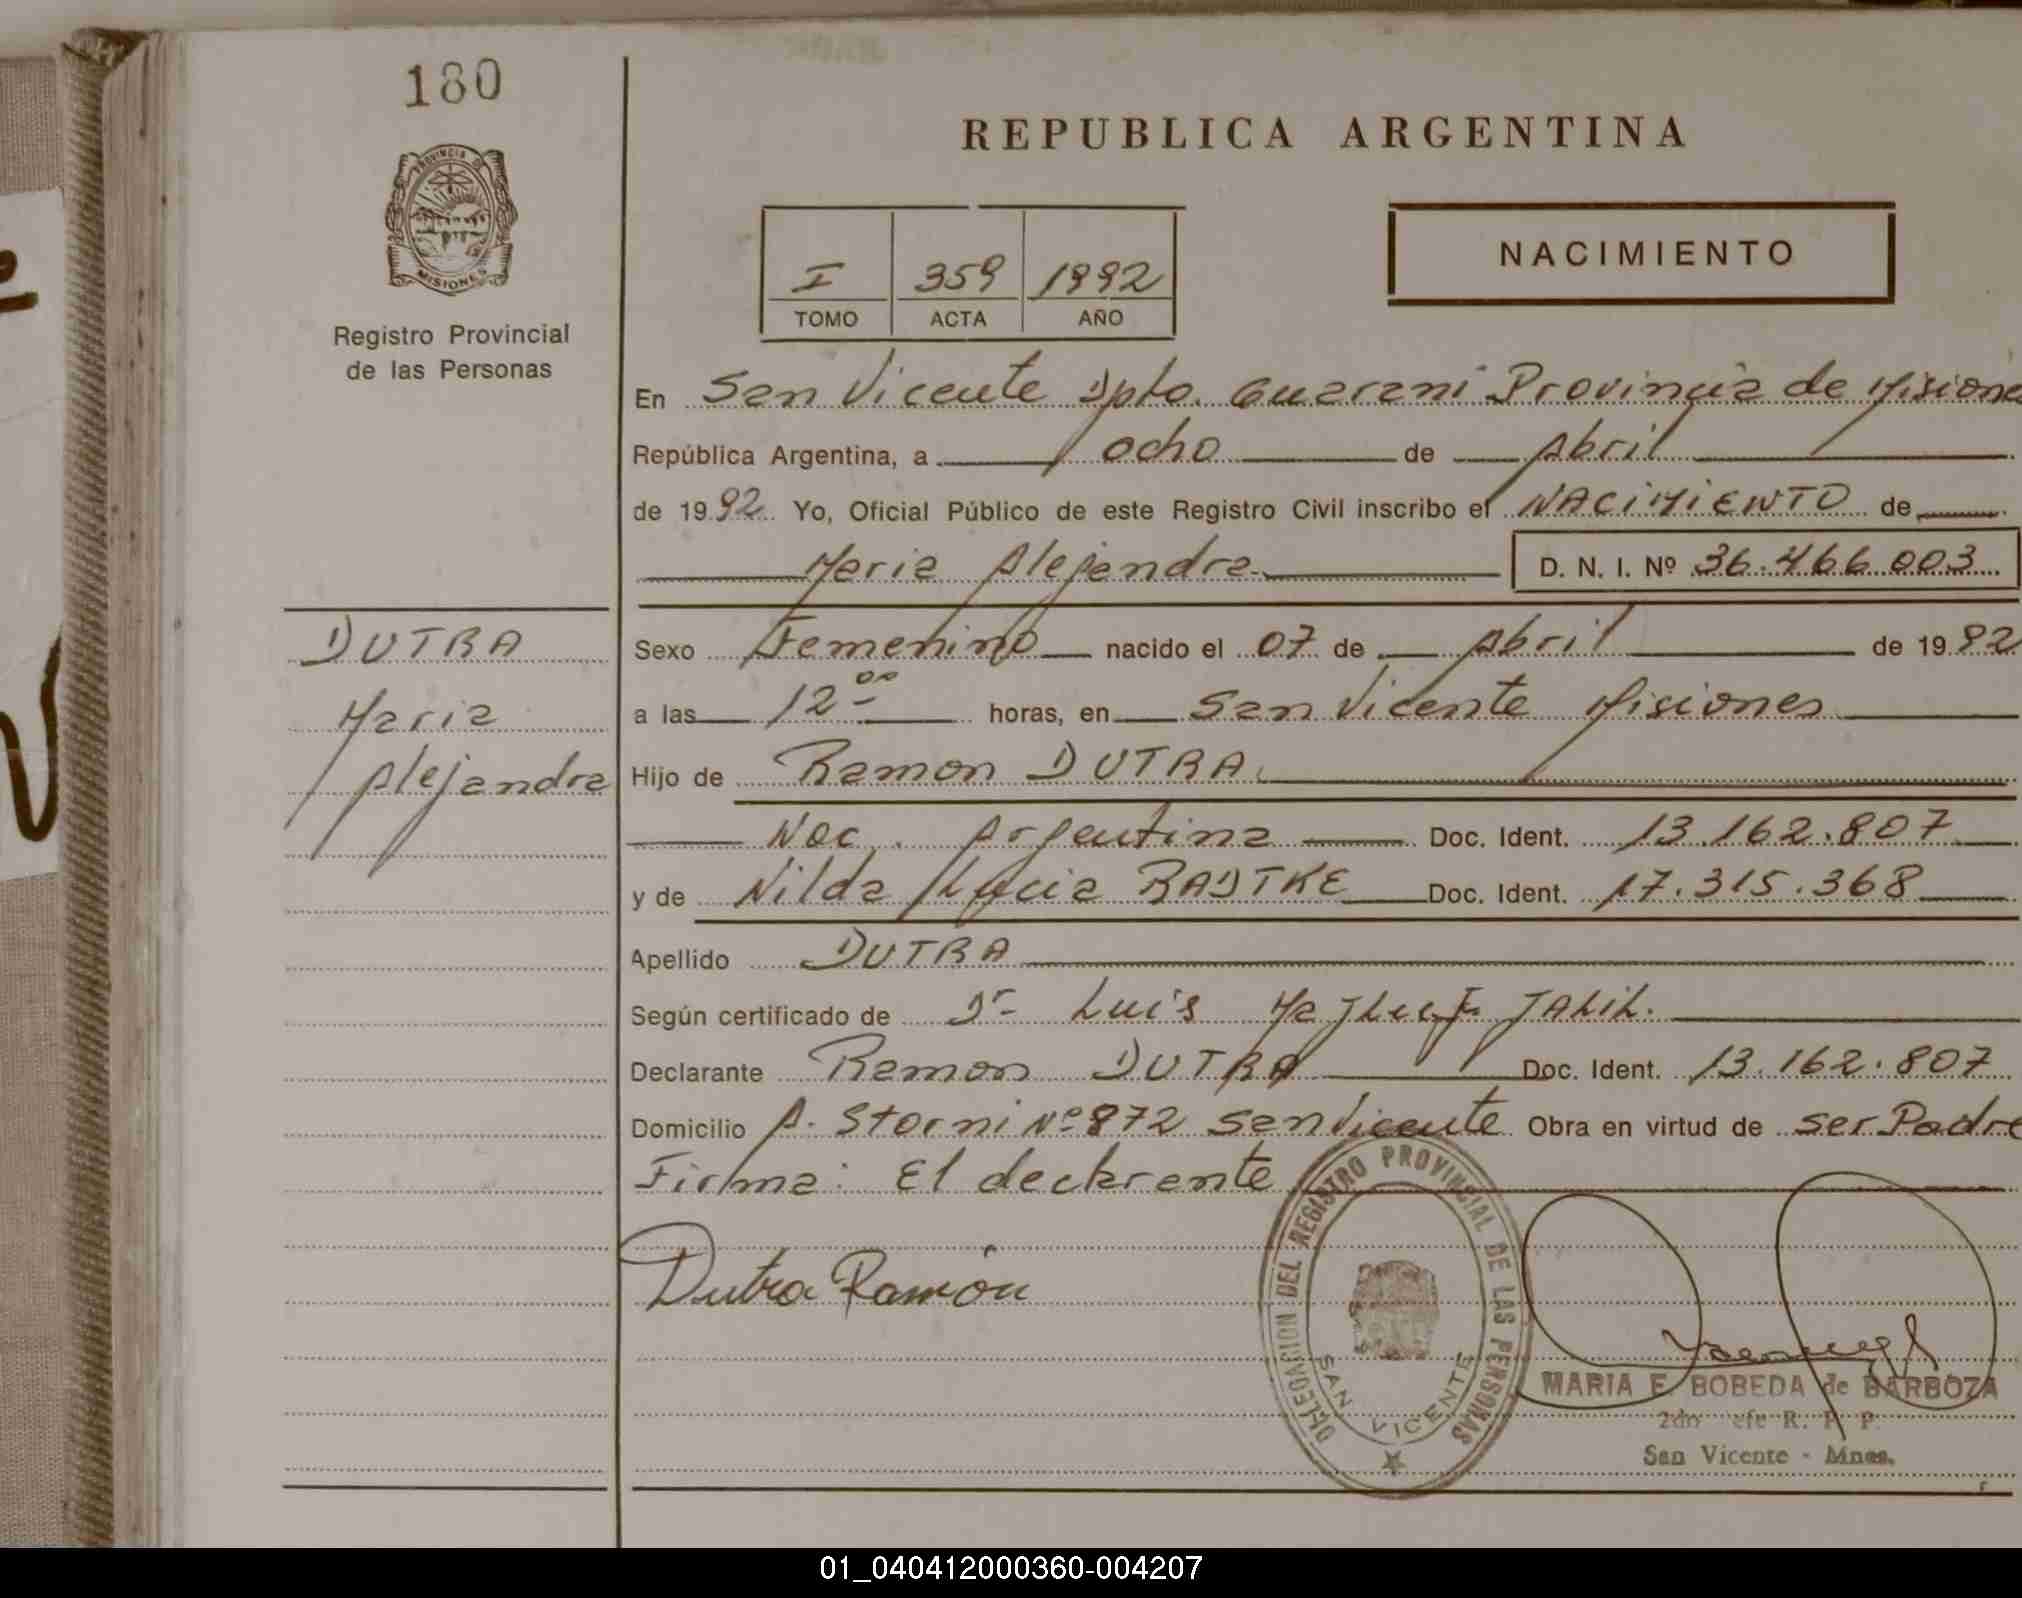 180
PROVINCIA DE
MISIONES
Registro Provincial
de las Personas
DUTRA
Maria
Alejandra
REPUBLICA ARGENTINA
I 359 1992
TOMO ACTA AÑO
NACIMIENTO
En San Vicente Dpto. Guarani Provincia de Misione
República Argentina, a ocho de Abril
de 1992 Yo, Oficial Público de este Registro Civil inscribo el NACIMIENTO de
Maria Alejandra D. N. I. Nº 36.466.003
Sexo Femenino nacido el 07 de Abril de 1992
a las 12 00 horas, en San Vicente Misiones
Hijo de Ramon DUTRA
Nac. Argentina Doc. Ident. 13.162.807
y de Nilda Lucia RADTKE Doc. Ident. 17.315.368
Apellido DUTRA
Según certificado de Dr Luis JALIL.
Declarante Ramon DUTRA Doc. Ident. 13.162.807
Domicilio A. Storni Nº 872 San Vicente Obra en virtud de ser Padre
Firma: El declarante
Dutra Ramón
DELEGACION DEL REGISTRO PROVINCIAL DE LAS PERSONAS
SAN VICENTE
MARIA E. BOBEDA de BARBOZA
2do efe R. P. P.
San Vicente - Mnes.
01_040412000360-004207